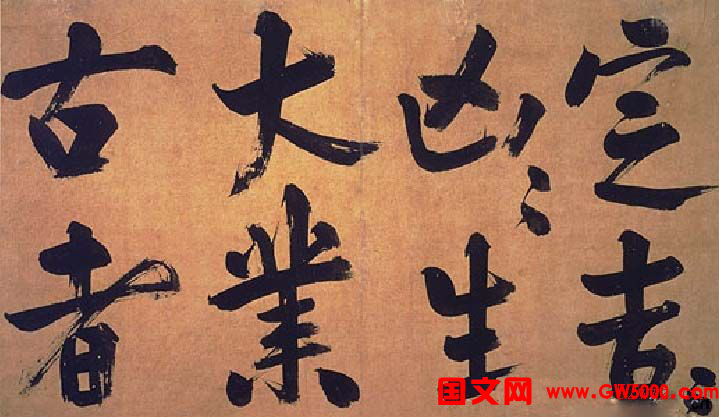 定吉〻
凶〻生
大業
古者
国文网 www.GW5000.com